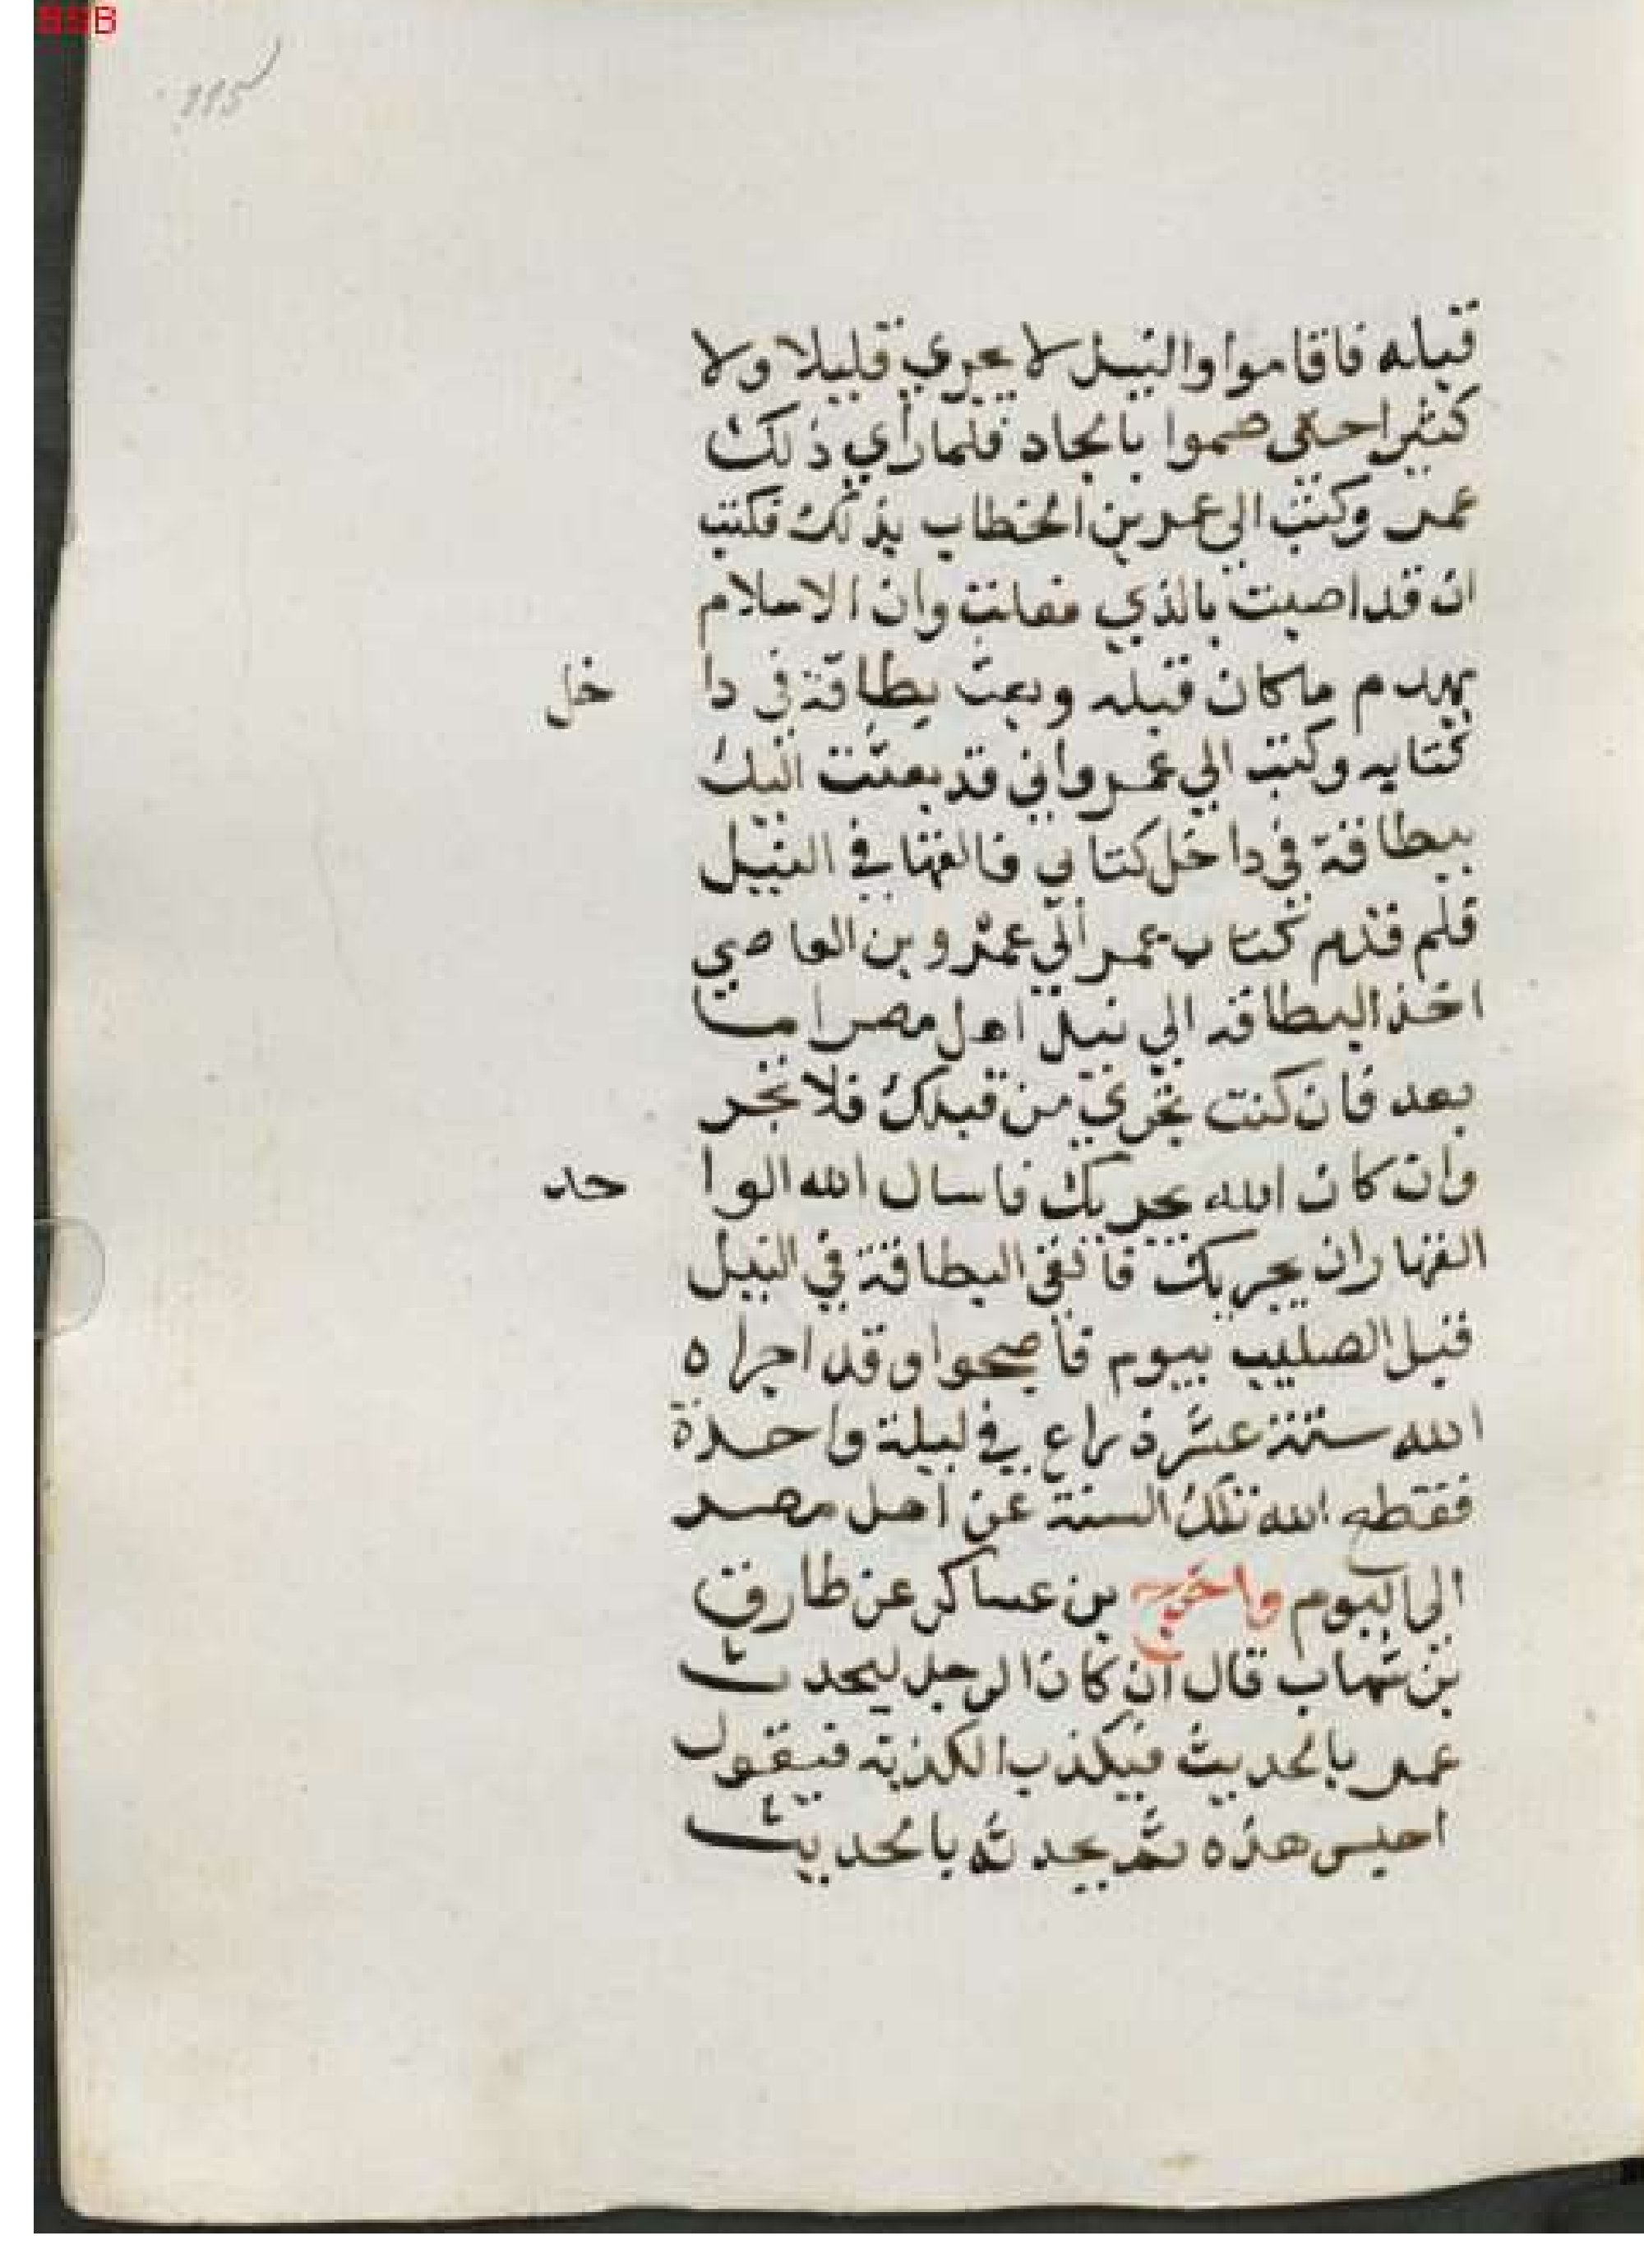 115
قبله فاقاموا والنيل لا يجري قليلا ولا
كثيرا حتى هموا بالجلا فلما راي ذلك
عمر وكتب الي عمر بن الخطاب بذلك فكتب
ان قد اصبت بالذي فعلت وان الاسلام
يهدم ماكان قبله وبعث بطاقة في دا خل
كتابه وكتب الي عمرو اني قد بعثت اليك
ببطاقة في داخل كتابي فالقها في النيل
فلم قدم كتاب عمر الي عمرو بن العاصي
اخذ البطاقة الي نيل اهل مصر اما
بعد فان كنت تجري من قبلك فلا تجر
وان كان الله يجريك فاسال الله الوا حد
القهار ان يجريك فالقى البطاقة في النيل
قبل الصليب بيوم فاصبحوا وقد اجراه
الله ستة عشر ذراع في ليلة واحدة
فقطع الله تلك السنة عن اهل مصر
الى اليوم واخرج بن عساكر عن طارق
بن شهاب قال ان كان الرجل ليحدث
عمر بالحديث فيكذب الكذبة فيقول
احبس هذه ثم يحدثه بالحديث